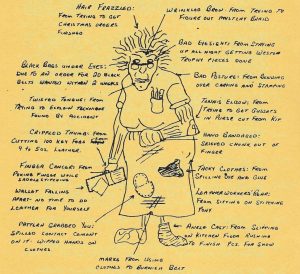 HAIR FRAZZLED:
FROM TRYING TO GET
CHRISTMAS ORDERS
FINISHED
WRINKLED BROW FROM TRYING TO
FIGURE OUT MYSTERY BRAID
BAD EYESIGHT FROM STAYING
UP ALL NIGHT GETTING WESTERN
TROPHY PIECES DONE
BLACK BAGS UNDER EYES:
DUE TO AN ORDER FOR 20 BLACK
BELTS WANTED WITHIN 2 WEEKS
BAD POSTURE: FROM BENDING
OVER CARVING AND STAMPING
TWISTED TONGUE: FROM
TRYING TO EXPLAIN TECHNIQUE
FOUND BY ACCIDENT
TENNIS ELBOW: FROM
TRYING TO GET GUSSETS
IN PURSE CUT FROM KIT
CRIPPLED THUMB: FROM
CUTTING 100 KEY FOBS
9 to 10oz. LEATHER.
HAND BANDAGED:
SKIVED CHUNK OUT OF
FINGER
FINGER CANCER: FROM
POKING FINGER WHILE
SADDLE STITCHING
TACKY CLOTHES: FROM
SPILLING DYE AND GLUE
WALLET FALLING
APART - NO TIME TO DO
LEATHER FOR YOURSELF
LEATHERWORKERS REAR:
FROM SITTING ON STITCHING
PONY
PATTERN GRABBED YOU:
SPILLED CONTACT CEMENT
ON IT. WIPPED HANDS ON
CLOTHES
ANKLE CAST: FROM SLIPPING
ON KITCHEN FLOOR RUSHING
TO FINISH PCS. FOR SHOW
MARKS FROM USING
CLOTHES TO BURNISH BELT